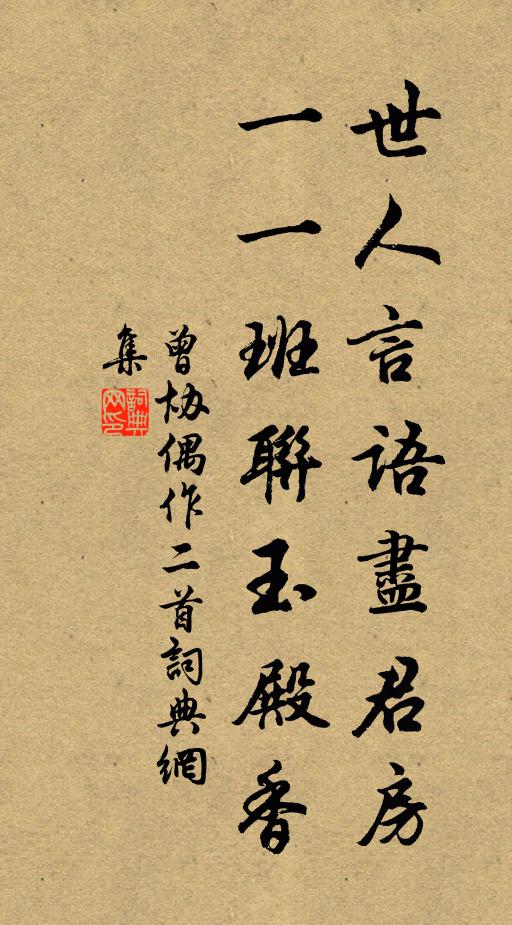 世人言語盡君房
一一班聯玉殿香
曾協偶作二首詞典網
集
詞典網印